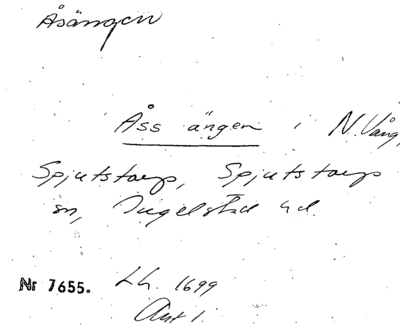 Åsängen
Åss ängen i N. Vång,
Spjutstorp, Spjutstorps
sn, Ingelstad hd.
Nr 7655. Lh. 1699
Ant 1.